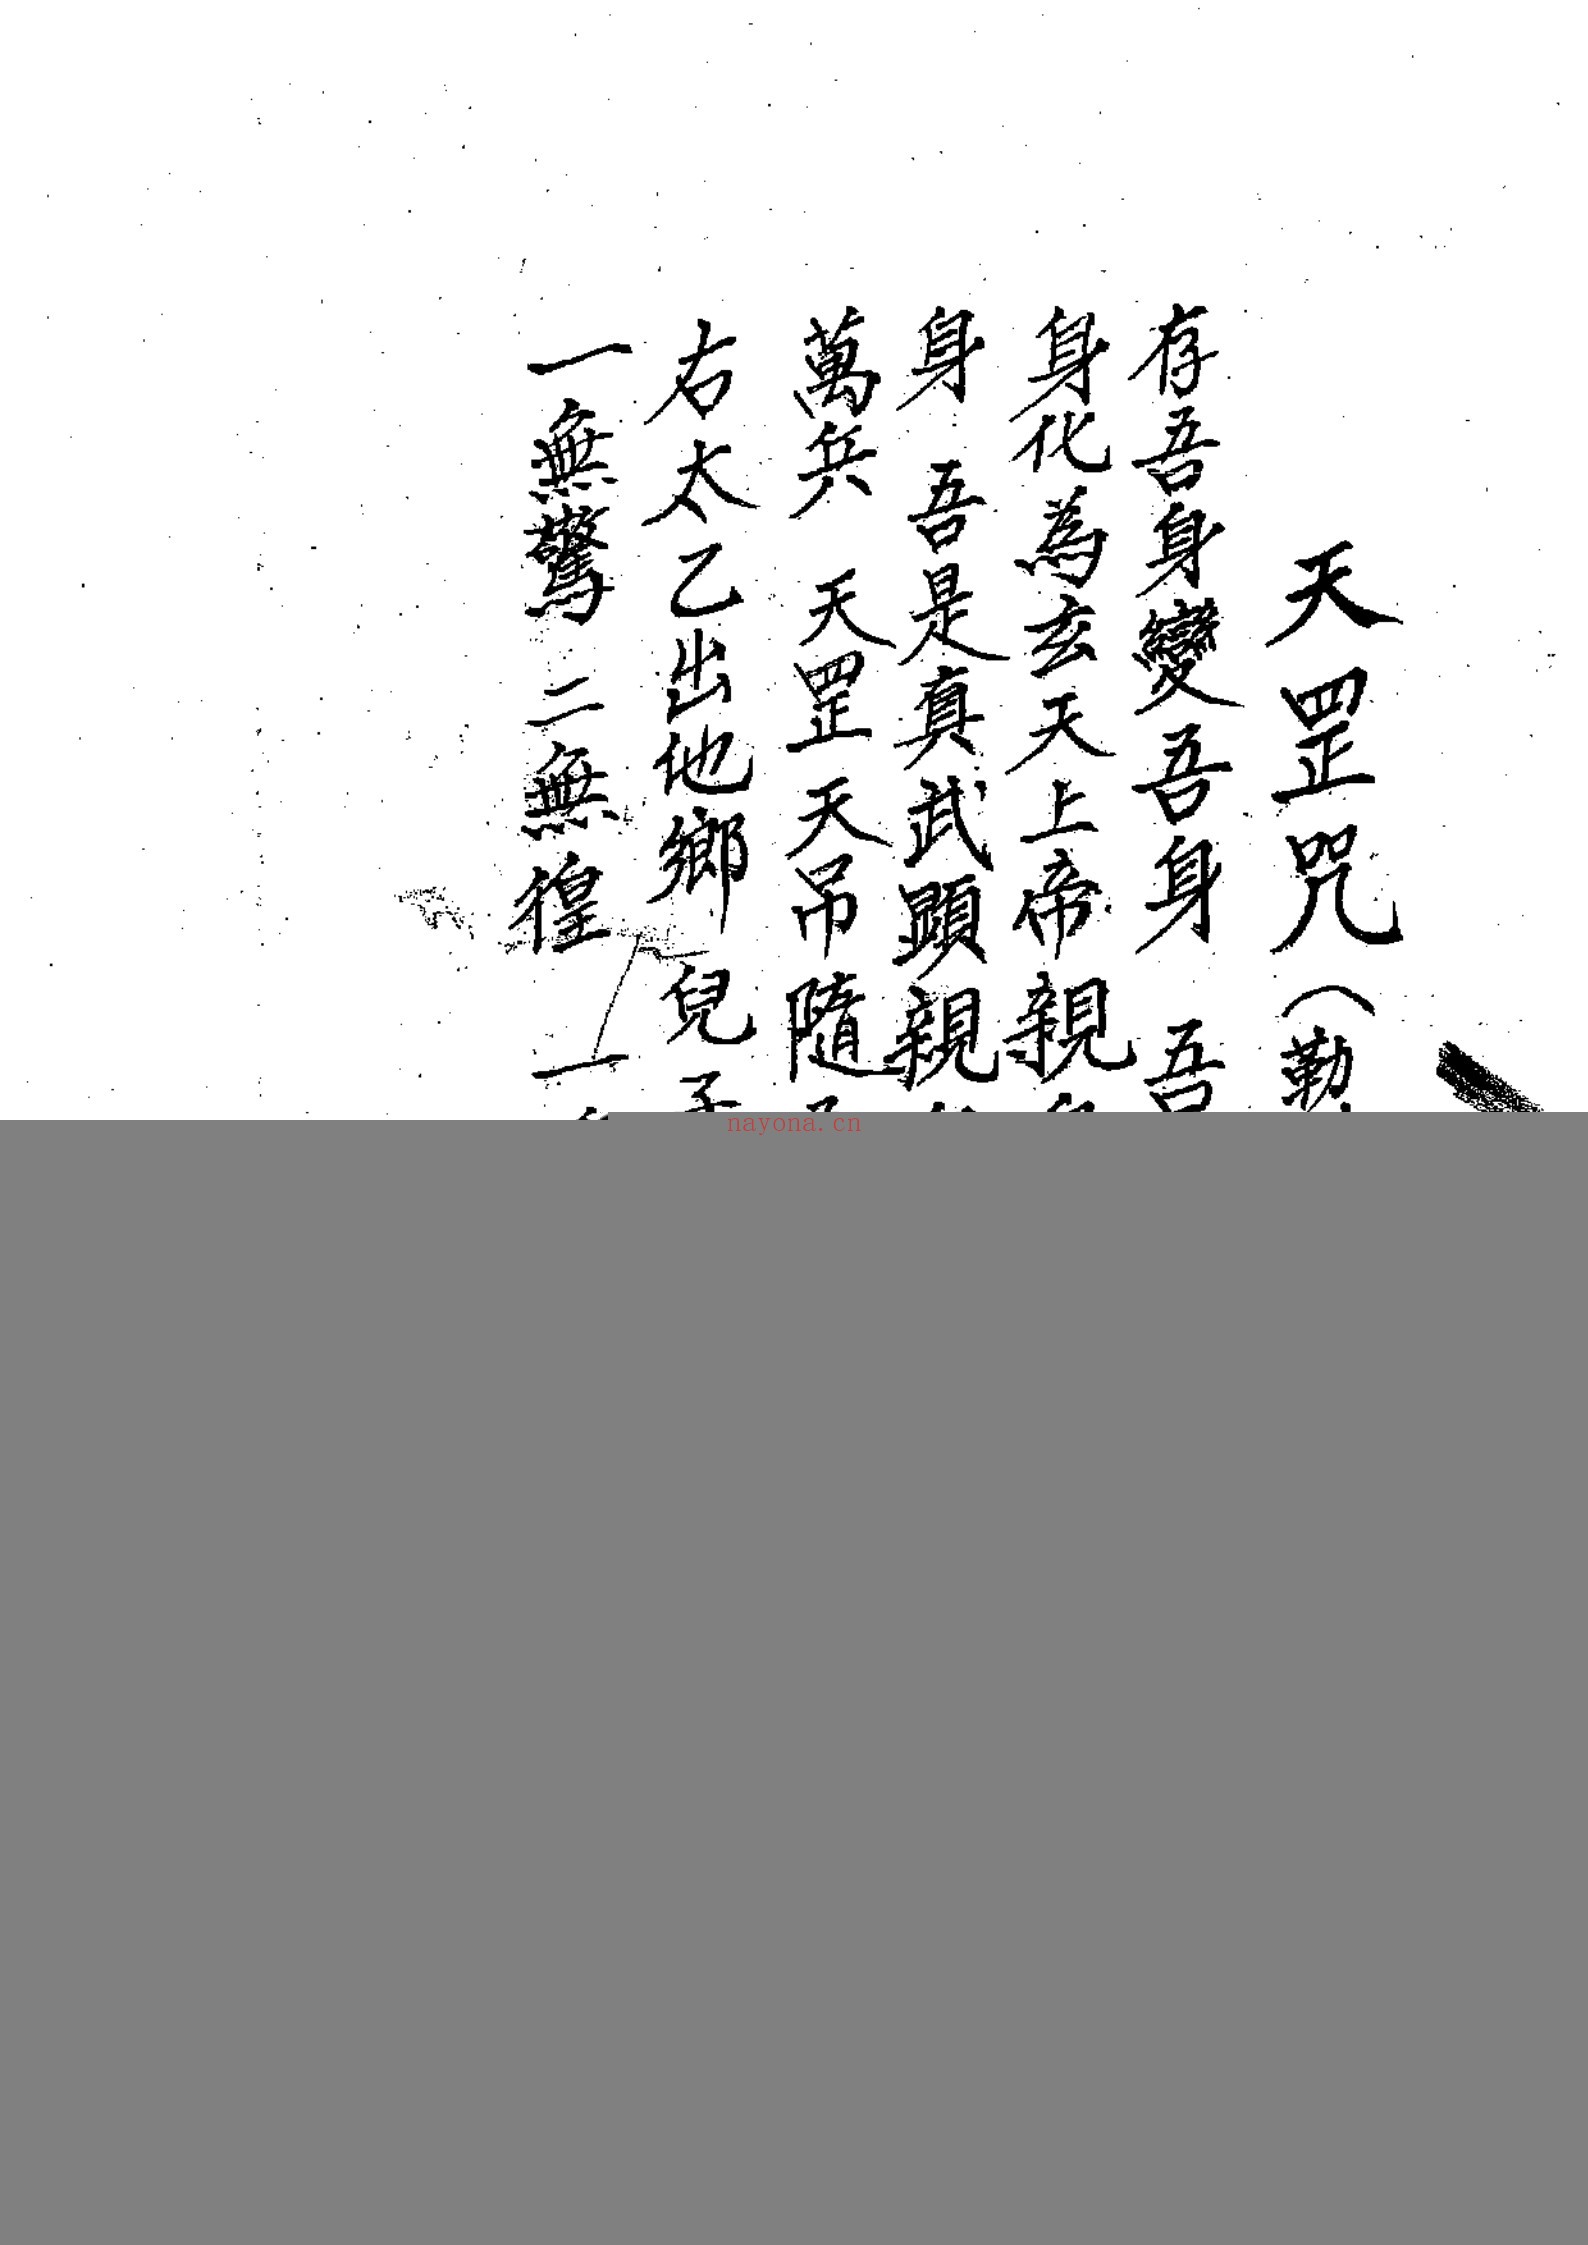 天罡咒（勒
存吾身變吾身 吾
身化為玄天上帝親
身 吾是真武顕親
萬兵 天罡天吊隨
右太乙出他鄉兒子
一無驚 二無徨 一
nayona.cn